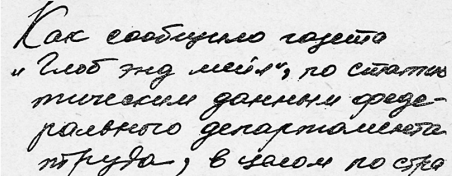 Как сообщило газета
„Глоб энд мейл“, по статис
тическим данным феде-
рального департамента
труда, в целом по стра